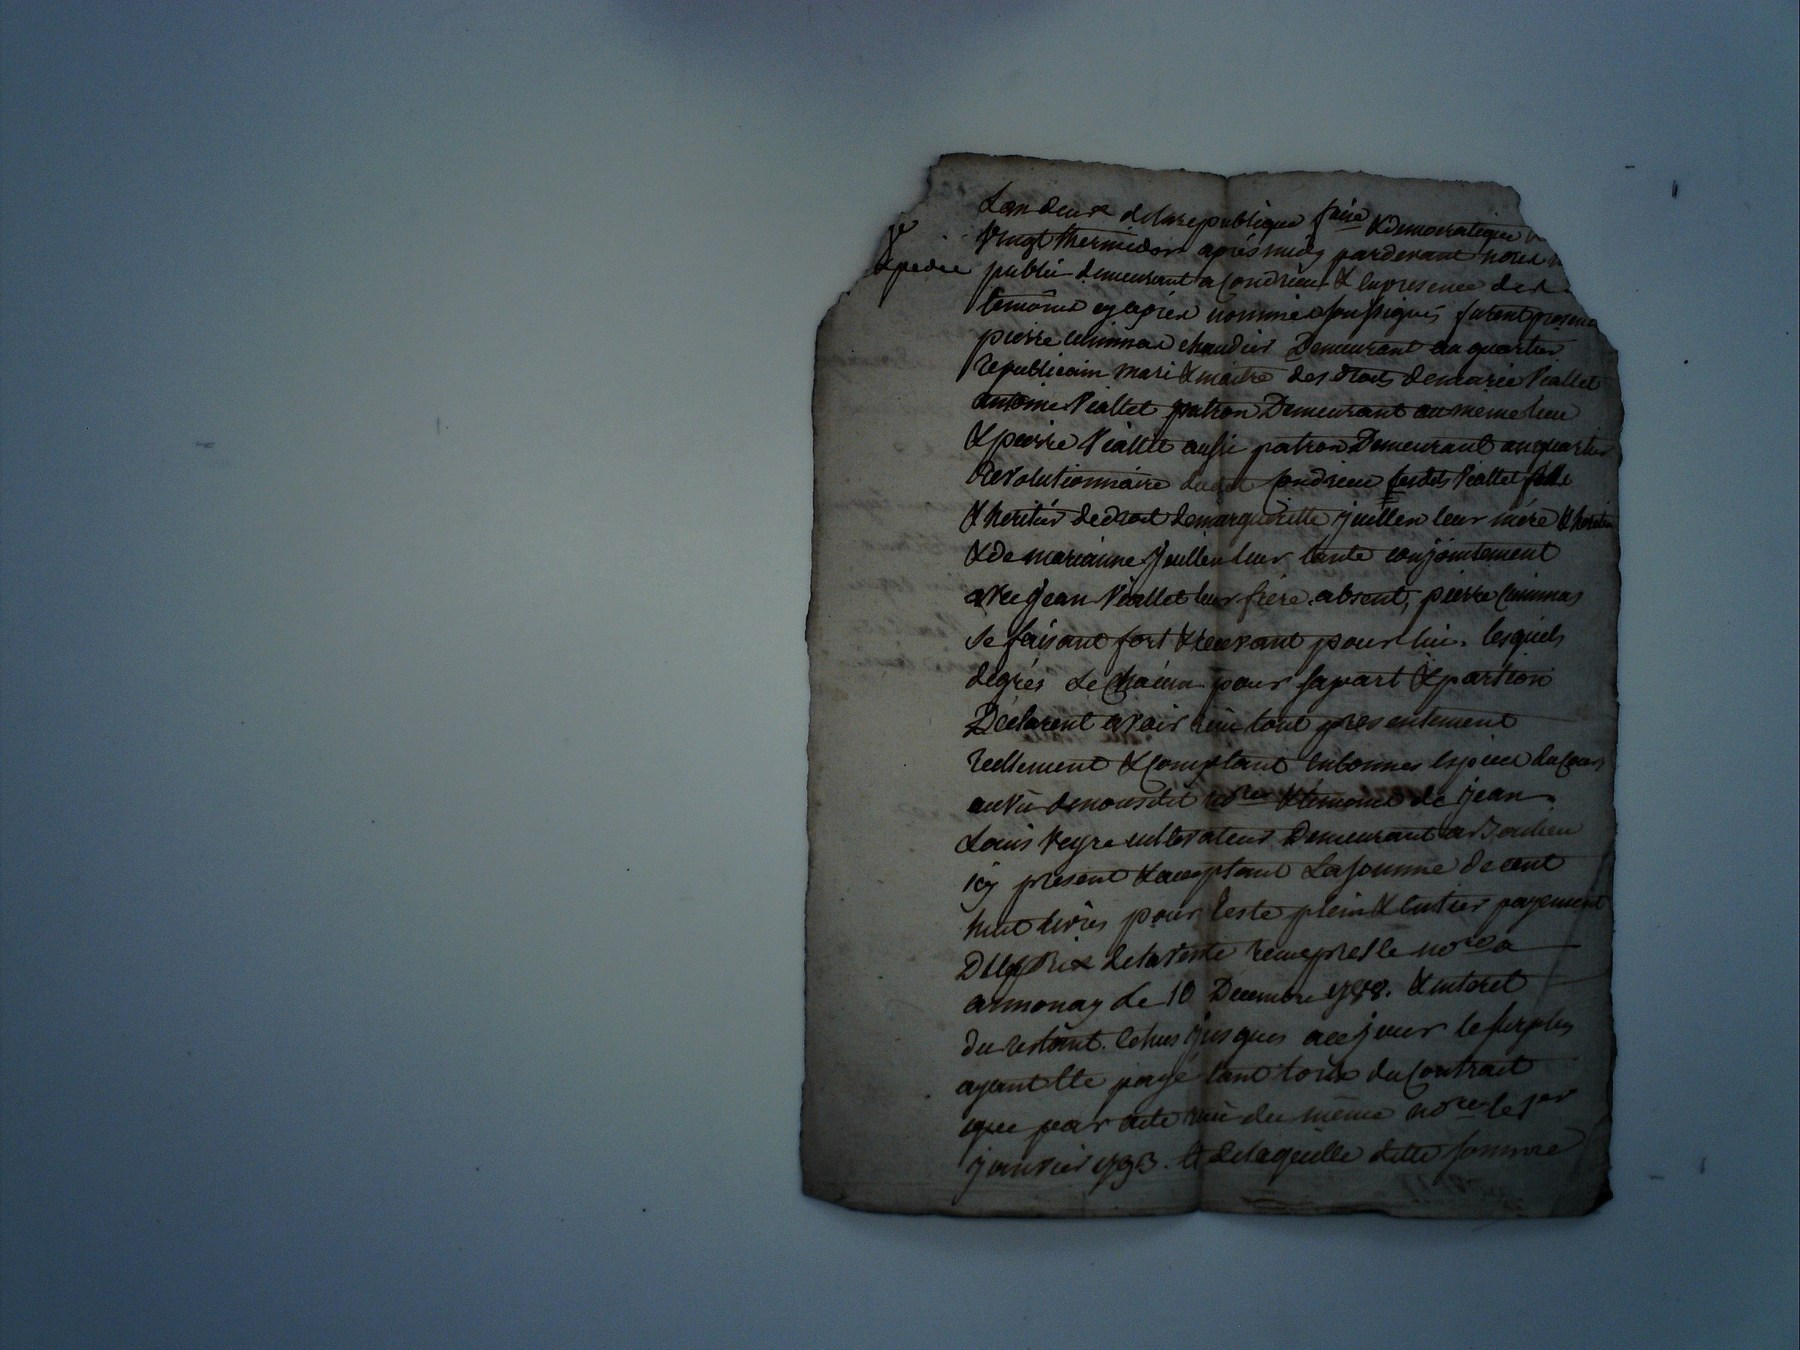 Lan deux de la republique fse & democratique
Vingt thermidor après midy pardevant nous
expedié publié demeurant a Condrieu & en presence des
temoins cy après nommés soussignés furent presens
pierre ciminas chaudier Demeurant au quartier
republicain mari & maitre des droits de marie Viallet
antoine Viallet patron Demeurant au même lieu
& pierre Viallet aussi patron Demeurant au quartier
Revolutionnaire dudit Condrieu lesdits Viallet
& heritiers de droit de margueritte jullien leur mère
& de marianne jullien leur tante conjointement
avec jean Viallet leur frère absent, pierre Ciminas
se faisant fort & recevant pour lui. lesquels
degrés de Chacun pour sa part & portion
Déclarent avoir reçu tout presentement
reellement & Comptant en bonnes especes du Cours
au vû de nousdit nore & temoins de jean
Louis Veyre cultivateur Demeurant a
icy present & acceptant La somme de cent
huit livres pour reste plein & entier payement
Du prix de la Vente reçue pres le nore a
annonay le 10 Decembre 1788. & interet
du restant Echus jusques a ce jour le surplus
ayant Ete payé tant lors du Contrat
que par acte reçu du même nore le 1er
janvier 1793. Et de laquelle ditte somme